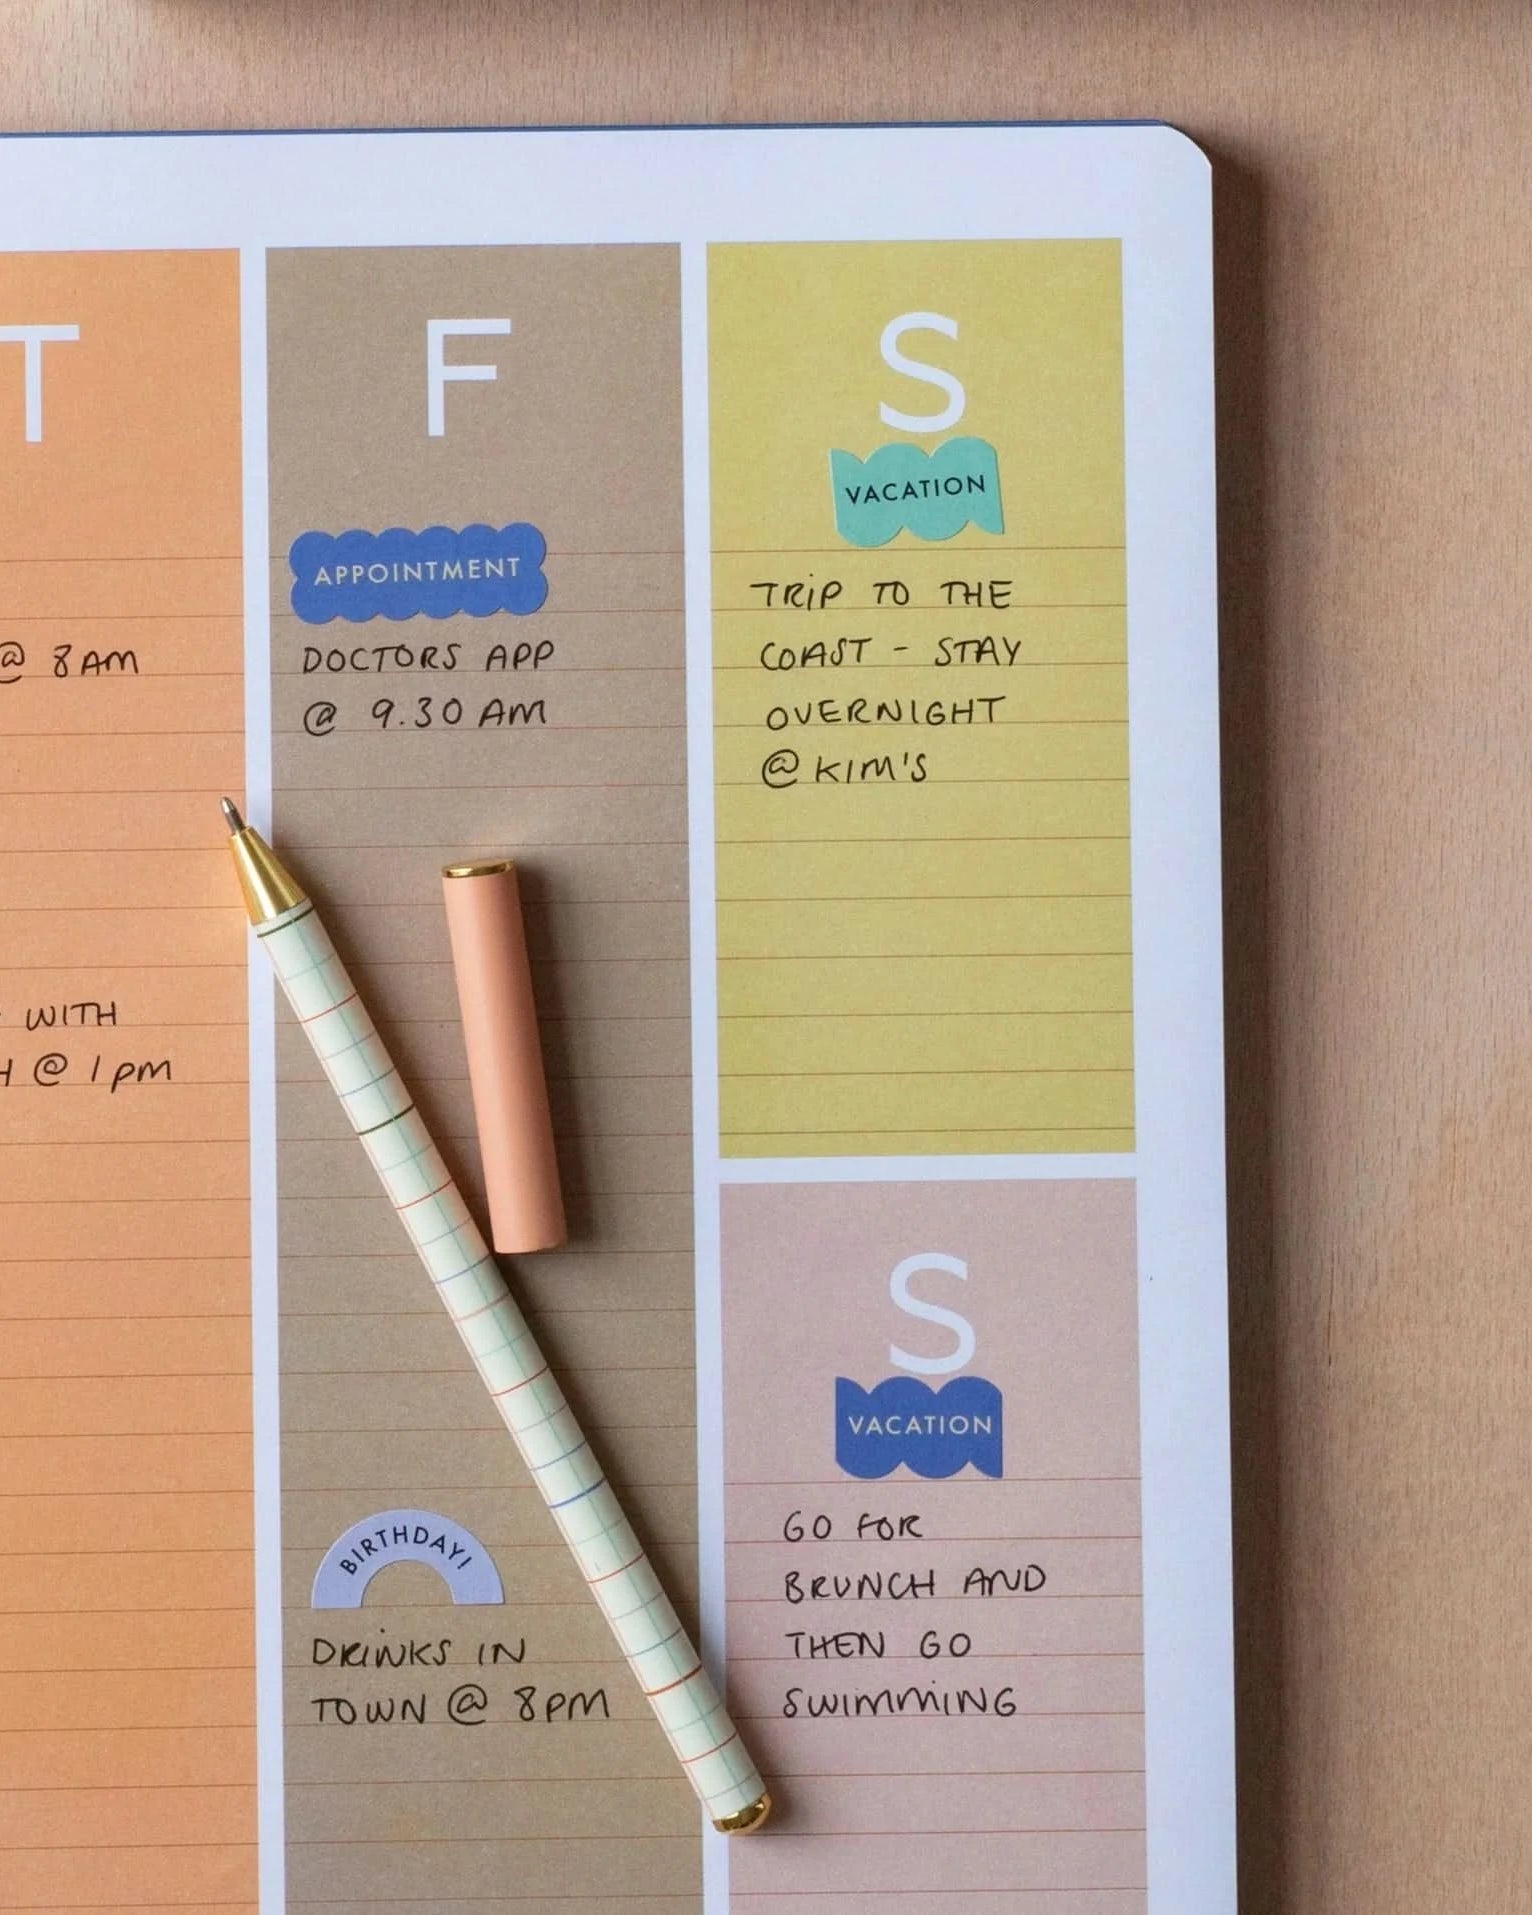 T
@ 8AM
WITH
@ 1pm
F
APPOINTMENT
DOCTORS APP
@ 9.30 AM
BIRTHDAY!
DRINKS IN
TOWN @ 8PM
S
VACATION
TRIP TO THE
COAST - STAY
OVERNIGHT
@ KIM'S
S
VACATION
GO FOR
BRUNCH AND
THEN GO
SWIMMING